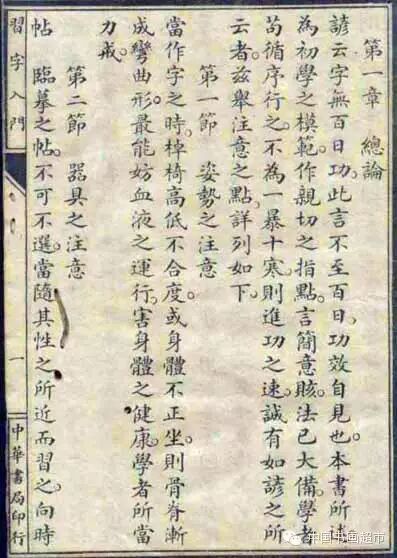 第一章　總論
諺云字無百日功。此言不至百日。功效自見也。本書所述
為初學之模範。作親切之指點。言簡意賅。法已大備。學者
苟循序行之。不為一暴十寒。則進功之速。誠有如諺之所
云者。兹舉注意之點。詳列如下。
第一節　姿勢之注意
當作字之時。棹椅高低不合度。或身體不正坐。則骨脊漸
成彎曲形。最能妨血液之運行。害身體之健康。學者所當
力戒。
第二節　器具之注意
帖　臨摹之帖。不可不選。當隨其性之所近而習之。向時
習字入門
一
中華書局印行
中国中国画超市